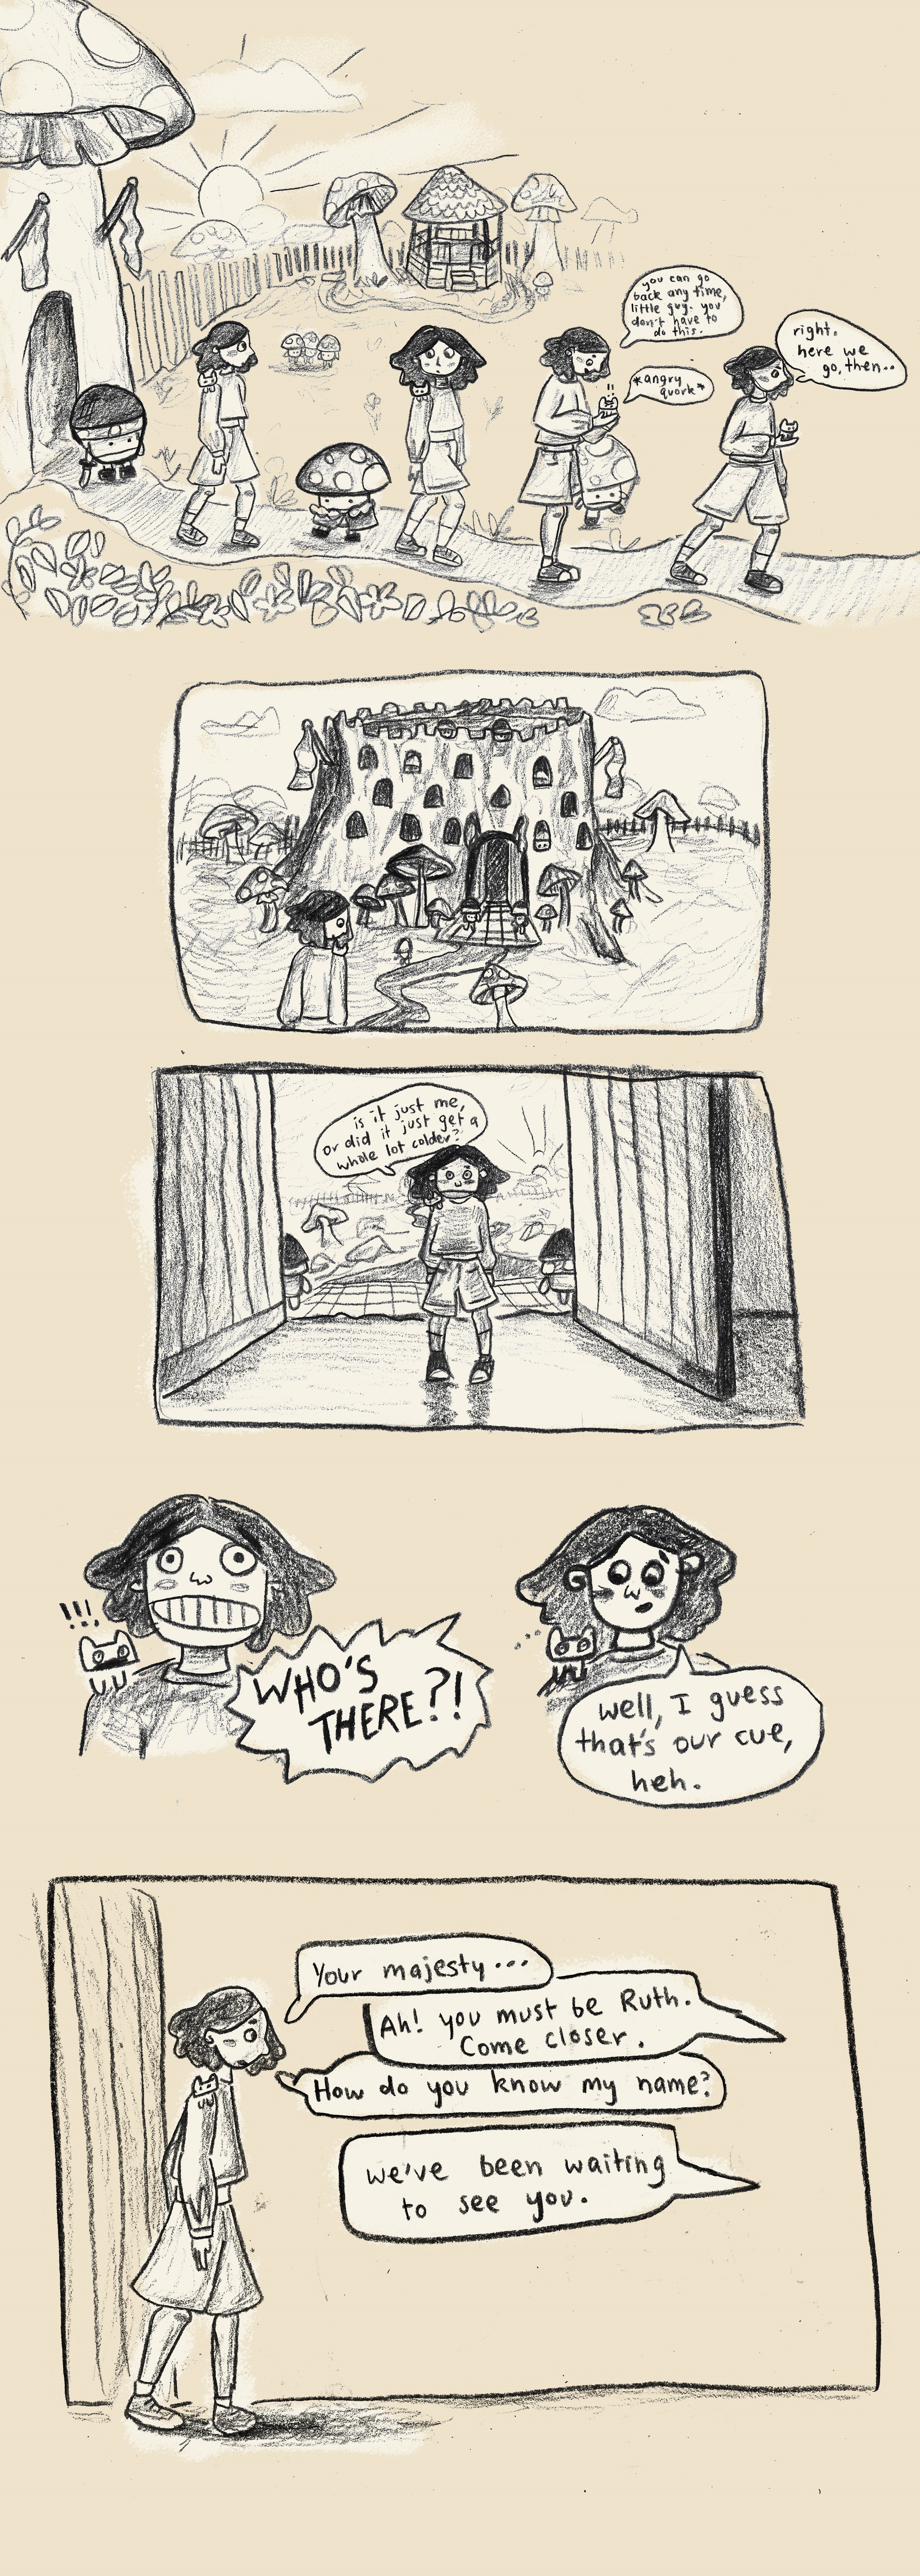 you can go
back any time,
little guy. you
don't have to
do this.
*angry
quork*
right.
here we
go, then..
is it just me,
or did it just get a
whole lot colder?
!!!
WHO'S
THERE?!
...
well, I guess
that's our cue,
heh.
Your majesty...
Ah! you must be Ruth.
Come closer.
How do you know my name?
we've been waiting
to see you.